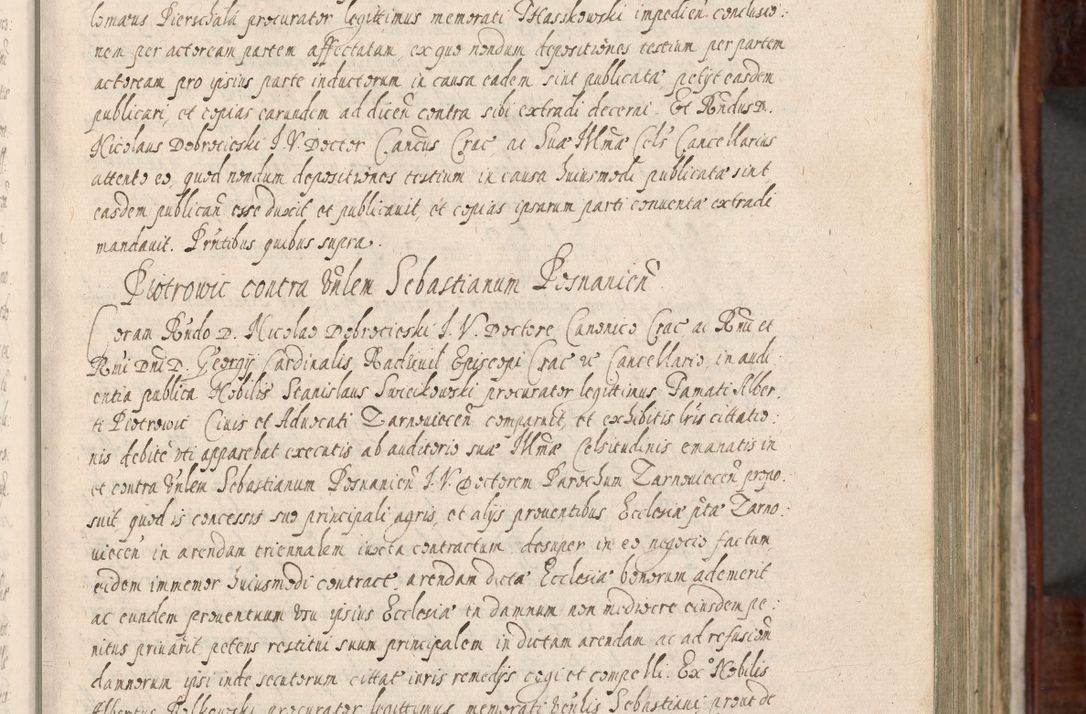 lomæus Pierschala procurator legittimus memorati Thasskowski impedien̄ conclusio:
nem per actoream partem affectatam, ex quo nondum depositiones testium per partem
actoream pro ipsius parte inductorum in causa eadem sint publicatæ petijt easdem
publicari, et copias earundem ad dicen̄ contra sibi extradi decerni. Et Rn̄dus D.
Nicolaus Dobrocieski I. V. Doctor Can̄cus Crac̄ ac Suæ Illmæ Cels: Cancellarius
attento eo, quod nondum depositiones testium in causa huiusmodi publicatæ sint
easdem publican̄ esse duxit et publicauit, et copias ipsarum parti conuentæ extradi
mandauit. Pr̄ntibus quibus supra.
Piotrowic contra Vn̄lem Sebastianum Posnanien̄
Coram Rn̄do D. Nicolao Dobrocieski I. V. Doctore Canonico Crac̄ ac Illmi et
Rm̄i Dn̄i D. Georgij Cardinalis Radiuil Episcopi Crac̄ vc Cancellario, in audi
entia publica Nobilis Stanislaus Swiecikowski procurator legittimus Famati Alber:
ti Piotrowic Ciuis et Aduocati Zarnouiecen̄ comparuit, et exhibitis lr̄is cittatio:
nis debitè vti apparebat executis ab auditorio suæ Illmæ Celsitudinis emanatis in
et contra Vn̄lem Sebastianum Posnanien̄ I. V. Doctorem Parochum Zarnouiecen̄ propo:
suit, quod is concessis suo principali agris, et alijs prouentibus Ecclesiæ p̄tæ Zarno:
uiecen̄ in arendam triennalem iuxta contractum desuper in eo negocio factum
eidem immemor huiusmodi contract arendam dictæ Ecclesiæ bonorum ademerit
ac eundem prouentuum vsu ipsius Ecclesiæ in damnum non mediocre eiusdem pe:
nitus priuarit petens restitui suum principalem in dictam arendam ac ad refusion̄
damnorum ipsi inde secutorum cittat iuris remedijs cogi et compelli. Exº Nobilis
Albertus Rolkowski procurator legittimus memorati Ven̄lis Sebastiani prout de